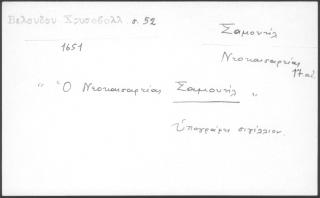 Βελουδου Χρυσοβολλ σ. 52
Σαμουήλ
1651
Νεοκαισαρείας
17 αἰ.
" Ὁ Νεοκαισαρείας Σαμουήλ "
Ὑπογράφει σιγίλλιον.